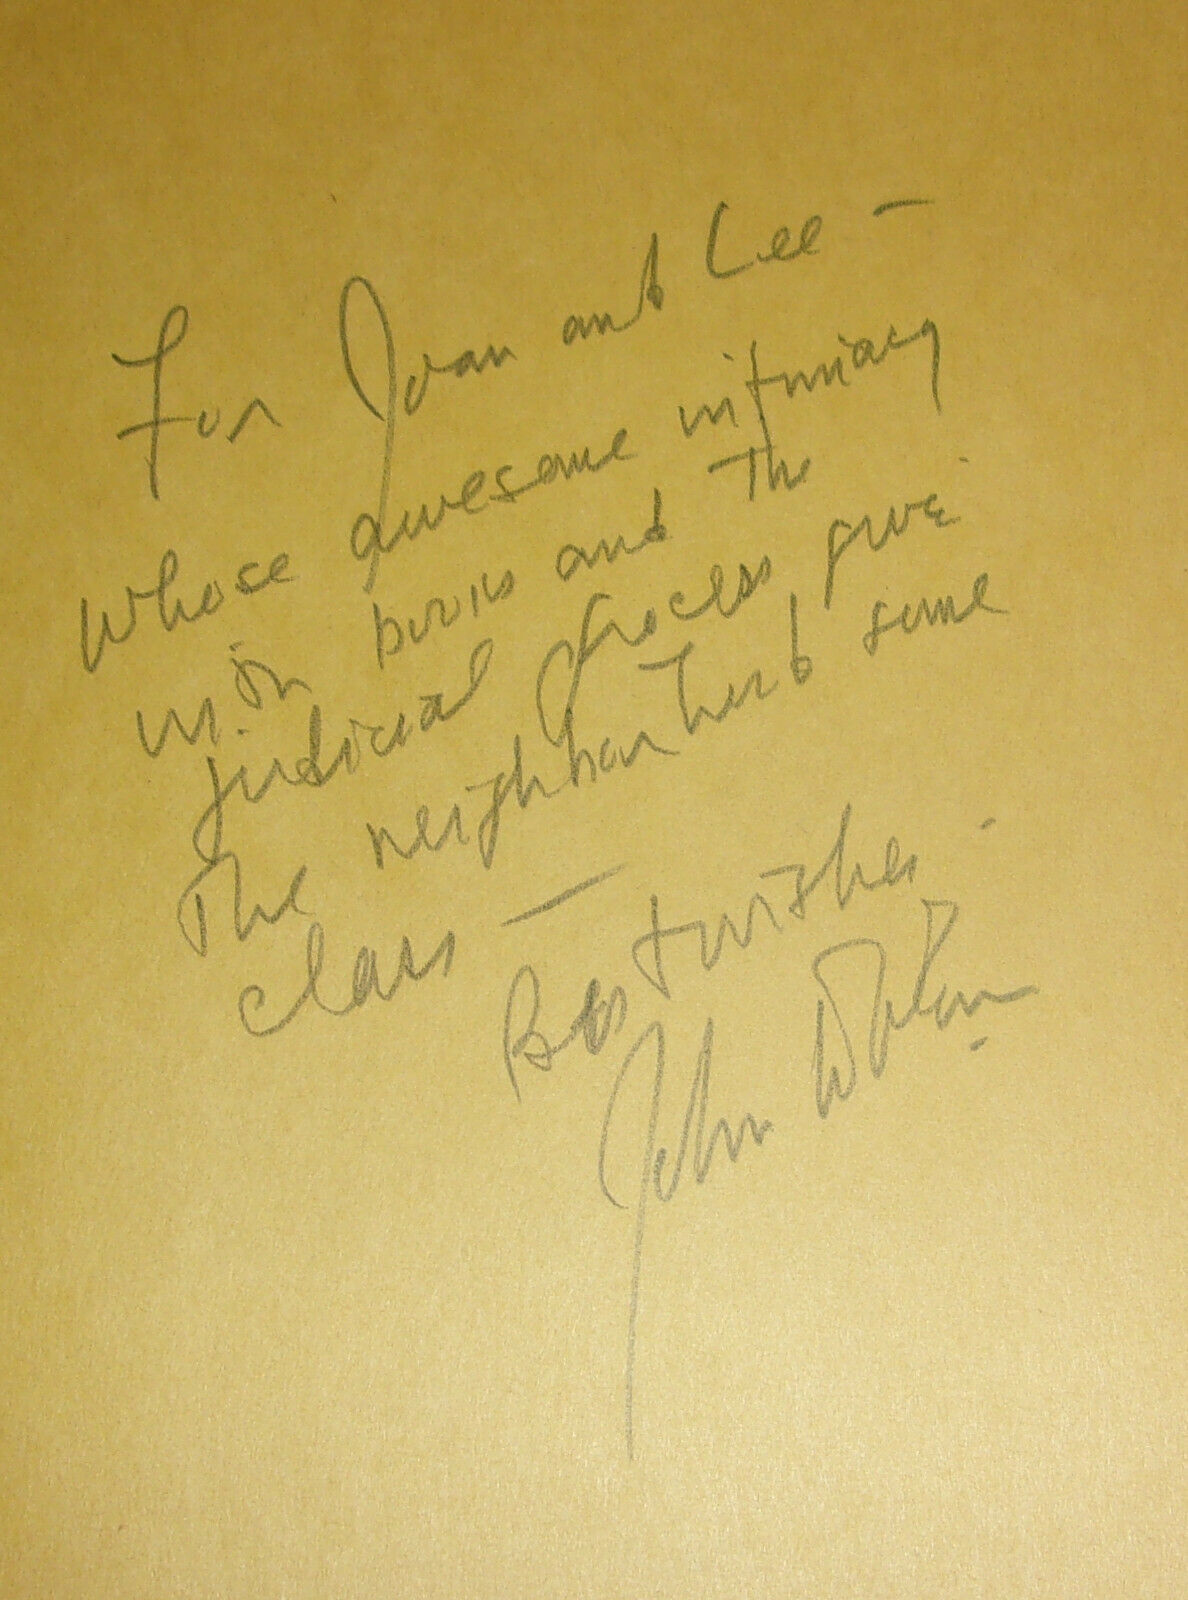 For Joan and Lee —
Whose awesome intimacy
with books and the
judicial process give
The neighborhood some
class —
Best wishes
John